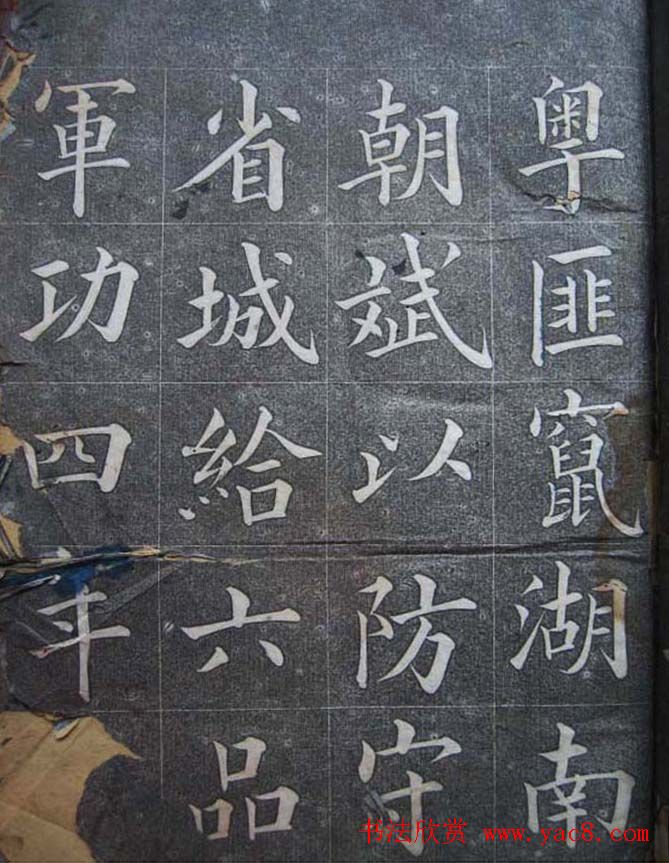 粤匪竄湖南
朝斌以防守
省城給六品
軍功四年
书法欣赏 www.yac8.com